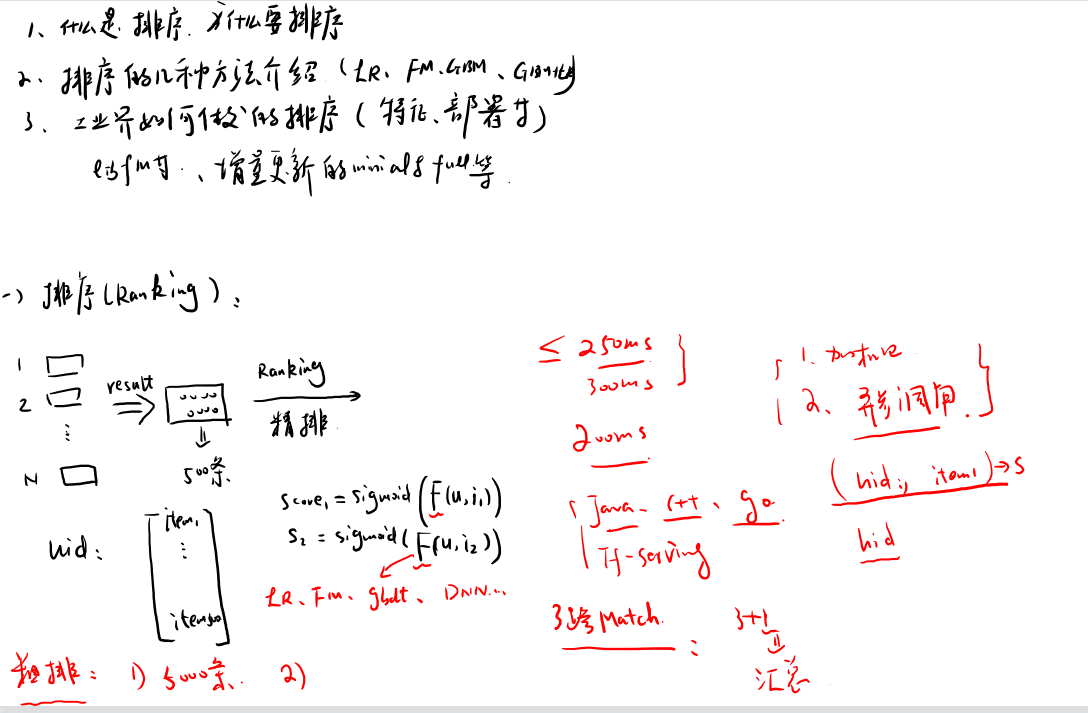 1、什么是排序.为什么要排序
2、排序的几种方法介绍(LR、FM、GBM、
3、工业界如何做的排序(特征、部署等)
增量更新的 full等
一)排序(Ranking):
1
2
⋮
N
result
500条
Ranking
精排
uid:
item1
⋮
item500
score1 = sigmoid(F(u,i1))
S2 = sigmoid(F(u,i2))
LR、FM、gbdt、DNN...
粗排: 1) 5000条. 2)
≤ 250ms
300ms
200ms
Java、C++、go
Tf-serving
3路Match: 3+1
汇总
1.
2、异步调用.
(uid1, item1)→S
uid